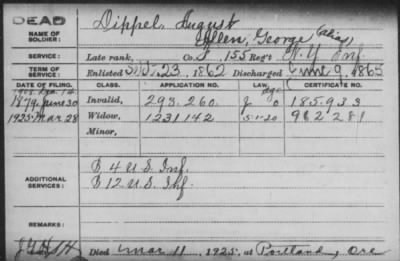 DEAD
Dippel, August
NAME OF SOLDIER:
Allen, George (alias)
SERVICE:
Late rank, Co. I, 155 Reg't N.Y. Inf.
TERM OF SERVICE:
Enlisted 23, 1862 Discharged June 9, 1865
DATE OF FILING.
CLASS.
APPLICATION NO.
LAW.
CERTIFICATE NO.
1879, June 30
Invalid, 293.260. 185.933
1925 Mar. 28
Widow, 1231142 5-1-20 962281
Minor,
ADDITIONAL SERVICES:
B 4 U.S. Inf.
B 12 U.S. Inf.
REMARKS:
Died Mar 11, 1925, at Portland, Ore